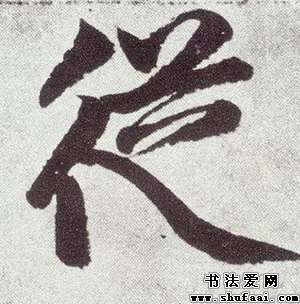 従
书法爱网
www.shufaai.com